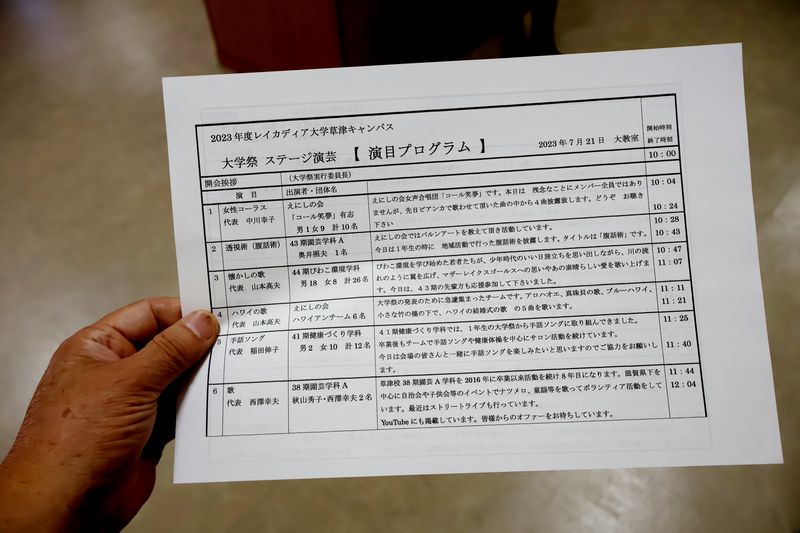 2023年度レイカディア大学草津キャンパス
大学祭 ステージ演芸 【 演目プログラム 】 2023年7月21日 大教室
開始時刻
終了時刻
開会挨拶 (大学祭実行委員長) 10:00
演 目 出演者・団体名
1 女性コーラス
代表 中川幸子
えにしの会
「コール笑夢」有志
男1女9 計10名
えにしの会女声合唱団「コール笑夢」です。本日は 残念なことにメンバー全員ではあり
ませんが、先日ビアンカで歌わせて頂いた曲の中から4曲披露致します。どうぞ お聴き
下さい
10:04
10:24
2 透視術(腹話術)
43期園芸学科A
奥井照夫 1名
えにしの会ではバルンアートを教えて頂き活動しています。
今日は1年生の時に 地域活動で行った腹話術を披露します。タイトルは「腹話術」です。
10:28
10:43
3 懐かしの歌
代表 山本高夫
44期びわこ環境学科
男18 女8 計26名
びわこ環境を学び始めた若者たちが、少年時代のいい日旅立ちを思い出しながら、川の流
れのように翼を広げ、マザーレイクスゴールスへの思いやあの素晴らしい愛を歌い上げま
す。今日は、43期の先輩方も応援参加して下さいました。
10:47
11:07
4 ハワイの歌
代表 山本高夫
えにしの会
ハワイアンチーム6名
大学祭の発表のために急遽集まったチームです。アロハオエ、真珠貝の歌、ブルーハワイ、
小さな竹の橋の下で、ハワイの結婚式の歌 の5曲を歌います。
11:11
11:21
5 手話ソング
代表 稲田伸子
41期健康づくり学科
男2 女10 計12名
41期健康づくり学科では、1年生の大学祭から手話ソングに取り組んできました。
卒業後もチームで手話ソングや健康体操を中心にサロン活動を続けています。
今日は会場の皆さんと一緒に手話ソングを楽しみたいと思いますのでご協力をお願いし
ます。
11:25
11:40
6 歌
代表 西澤幸夫
38期園芸学科A
秋山秀子・西澤幸夫2名
草津校38期園芸A学科を2016年に卒業以来活動を続け8年目になります。滋賀県下を
中心に自治会や子供会等のイベントでナツメロ、童謡等を歌ってボランティア活動をして
います。最近はストリートライブも行っています。
YouTubeにも掲載しています。皆様からのオファーをお待ちしています。
11:44
12:04